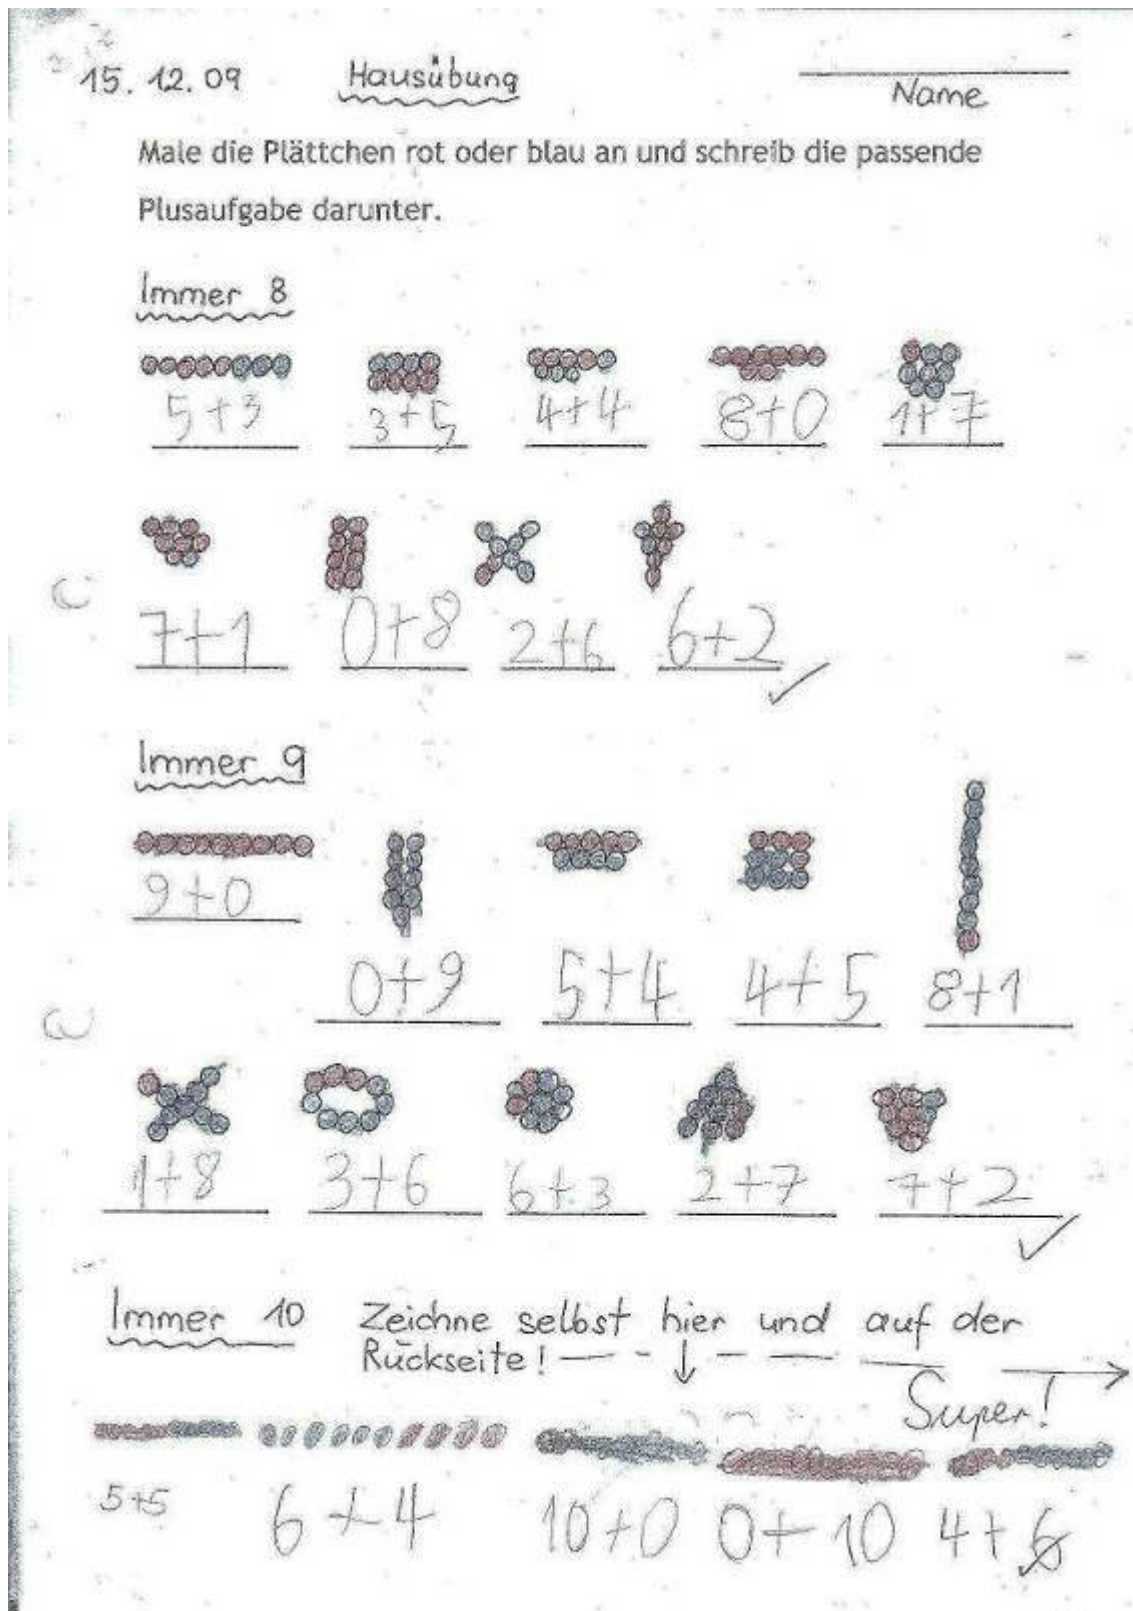 15.12.09 Hausübung Name
Male die Plättchen rot oder blau an und schreib die passende
Plusaufgabe darunter.
Immer 8
5+3 3+5 4+4 8+0 1+7
7+1 0+8 2+6 6+2
Immer 9
9+0
0+9 5+4 4+5 8+1
1+8 3+6 6+3 2+7 7+2
Immer 10 Zeichne selbst hier und auf der
Rückseite!
Super!
5+5 6+4 10+0 0+10 4+6